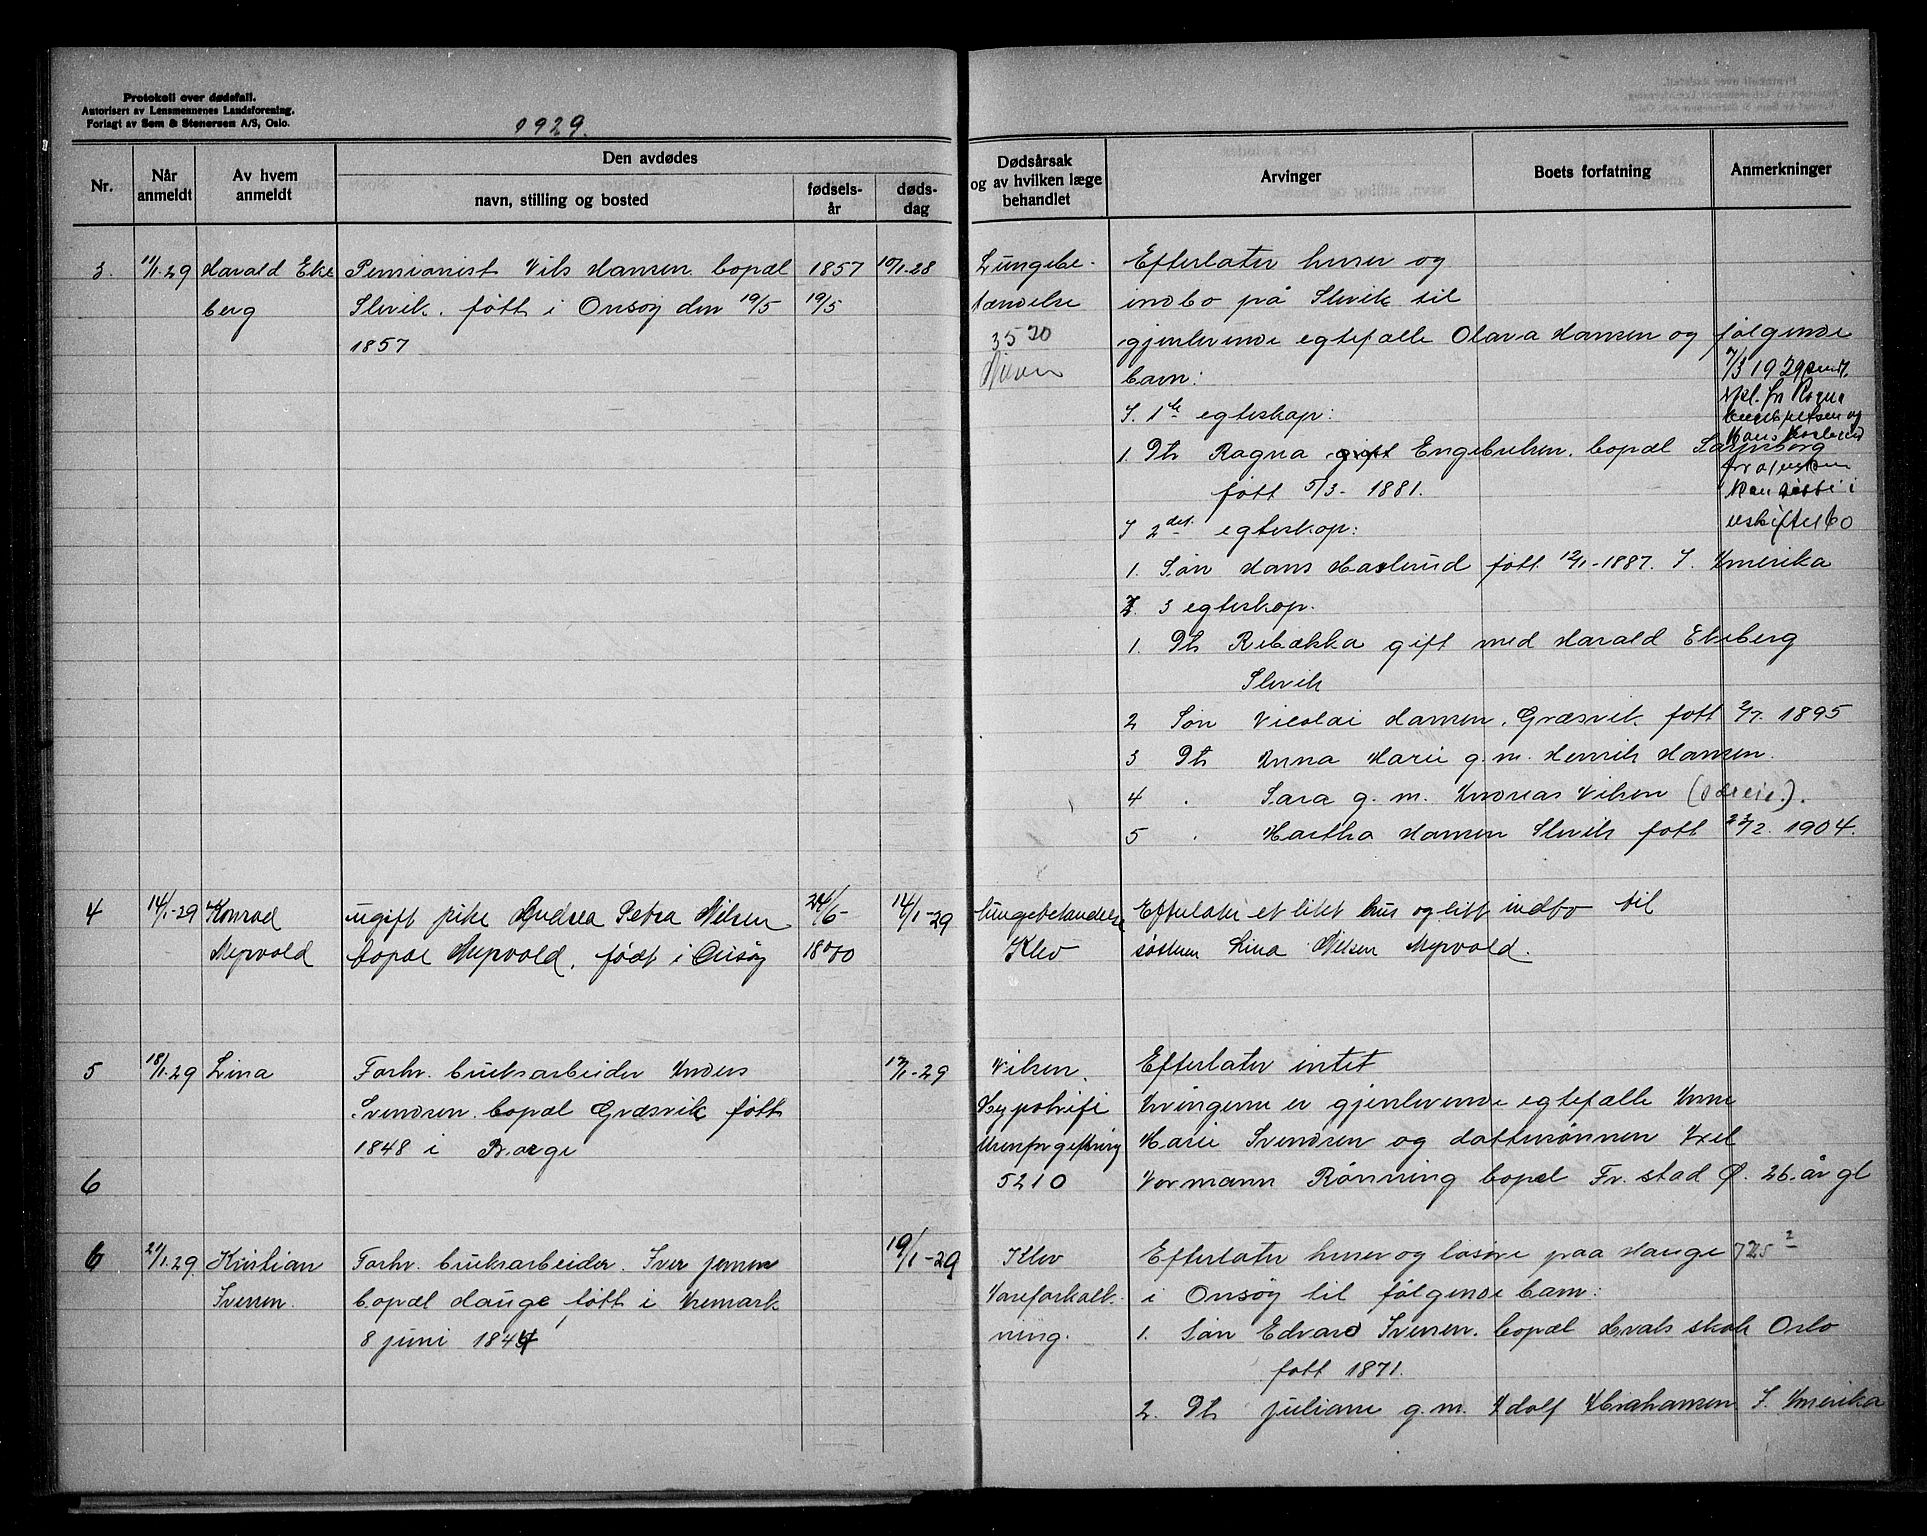 Protokoll over dødsfall.
Autorisert av Lensmennenes Landsforening.
Forlagt av Sem & Stenersen A/S, Oslo.
1929.
Nr.
Når anmeldt
Av hvem anmeldt
Den avdødes
navn, stilling og bosted
fødsels-år
døds-dag
Dødsårsak og av hvilken læge behandlet
Arvinger
Boets forfatning
Anmerkninger
3. 11/1.29 Harald Eke Pensionist Nils Hansen bopæl 1857 10/1-28
berg Slevik. født i Onsøy den 19/5 19/5
1857
Lungebe-
tændelse
3520
Efterlater huser og
indbo på Slevik til
gjenlevende egtefælle Olava Hansen og følgende
barn:
I. 1ste egteskap:
1. Dtr Ragna gift Engebretsen. bopæl Sarpsborg
født 5/3- 1881.
I 2det egteskap:
1. Søn Hans Haslund født 12/1-1887. I Amerika
I. 3 egteskap.
1. Dtr Rebækka gift med Harald Ekeberg
Slevik
2 Søn Nicolai Hansen, Græsvik født 2/7. 1895
3 Dtr Anna Marie g. m. Henrik Hansen.
4 . Sara g. m. Andreas Nilsen
5 . Martha Hansen Slevik født 23/2. 1904.
7/3 1929 sendt
skpl. fr Ragna
Engebretsen og
Hans Haslund
uskiftet bo
4 14/1-29 Konrad ugift pike Andrea Petra Nilsen 24/6- 14/1-29
Myrvold bopæl Myrvold, født i Onsøy 1880
lungebetændelse Efterlater et litet hus og litt indbo til
Klev søsteren Lina Nilsen Myrvold.
5 18/1.29 Lina Forhv. bruksarbeider Anders 17/1-29
Svendsen. bopæl Græsvik født
1848 i Borge
Nilsen.
Hypotrofi
5210
Efterlater intet
Arvingerne er gjenlevende egtefælle Anne
Marie Svendsen og dattersønnen Axel
Normann Rønning bopæl Fr. stad Ø. 26. år gl
6
6 21/1.29. Kristian Forhv. bruksarbeider. Iver Jensen 19/1-29
Iversen. bopæl Hauge født i Aremark
8 juni 1844
Klev
Aareforkalk-
ning.
Efterlater huser og løsøre paa Hauge 725 2
i Onsøy til følgende barn:
1. Søn Edvard Iversen. bopæl Hvals skole Oslo
født 1871.
2. Dtr Juliane g.m. Adolf Abrahamsen I. Amerika